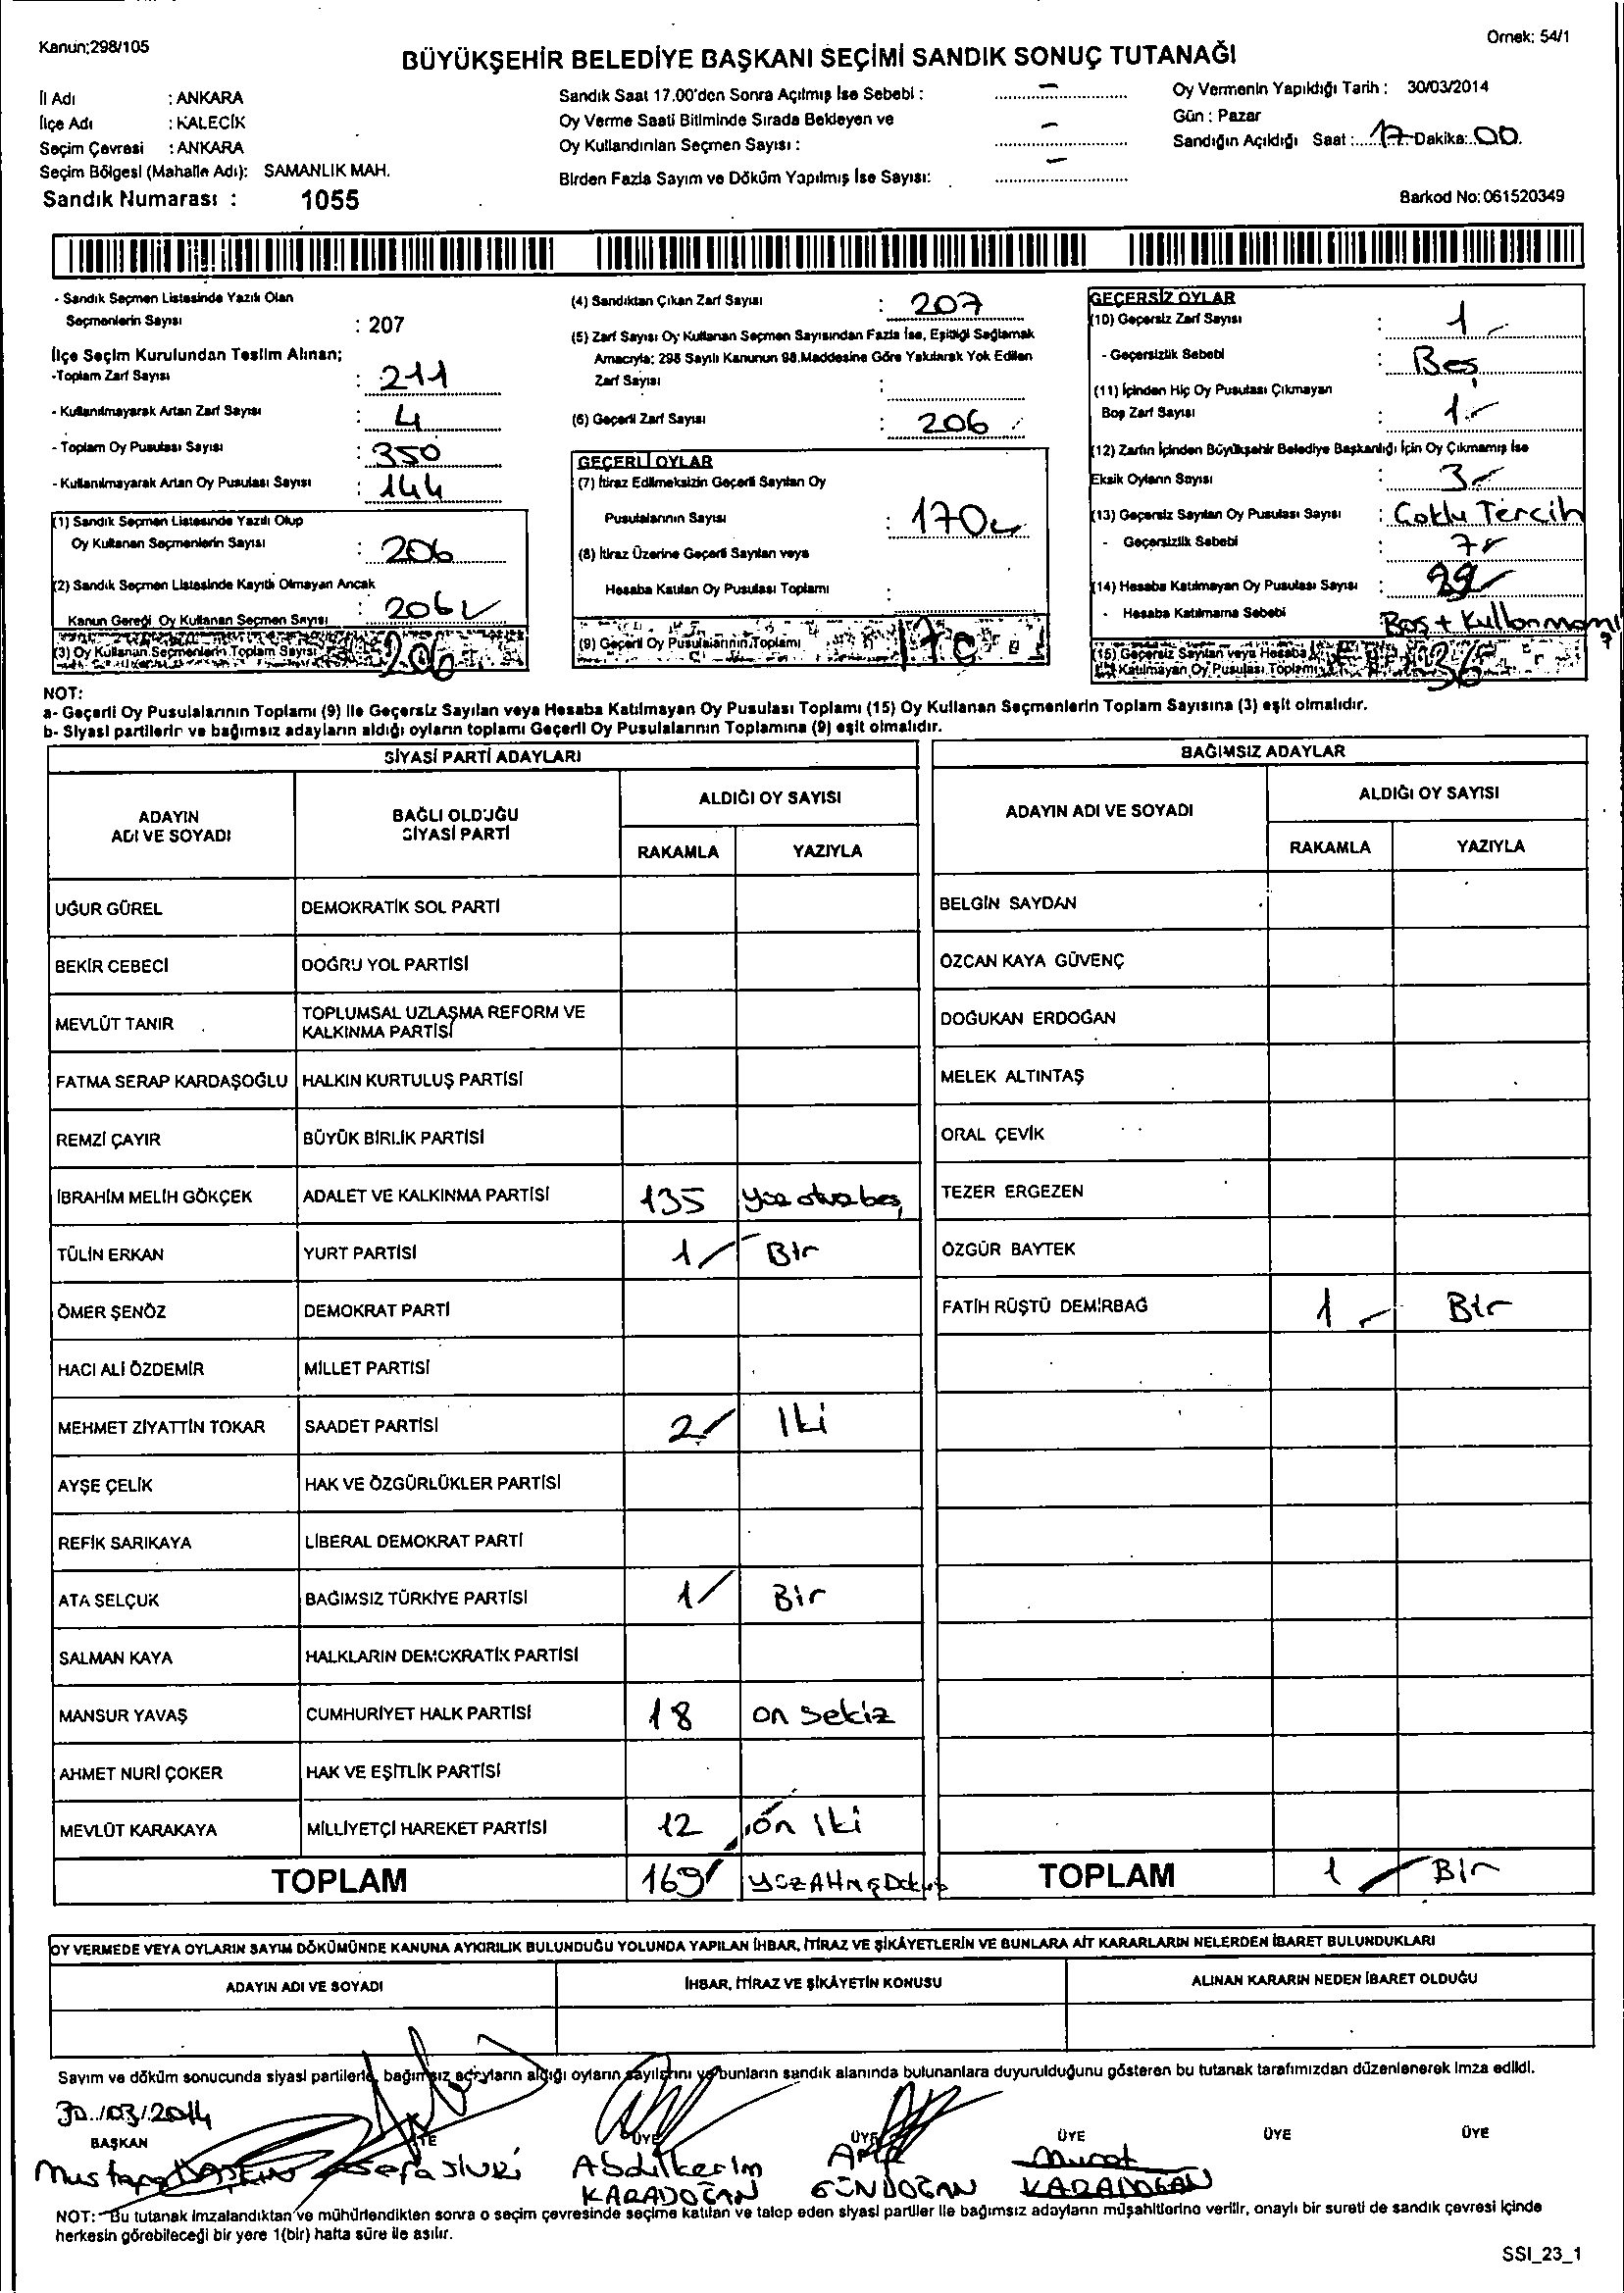 Kanun;298/105
Örnek: 54/1
BÜYÜKŞEHİR BELEDİYE BAŞKANI SEÇİMİ SANDIK SONUÇ TUTANAĞI
İl Adı : ANKARA
İlçe Adı : KALECİK
Seçim Çevresi : ANKARA
Seçim Bölgesi (Mahalle Adı): SAMANLIK MAH.
Sandık Numarası : 1055
Sandık Saat 17.00'den Sonra Açılmış İse Sebebi : –
Oy Verme Saati Bitiminde Sırada Bekleyen ve
Oy Kullandırılan Seçmen Sayısı : –
Birden Fazla Sayım ve Döküm Yapılmış İse Sayısı: –
Oy Vermenin Yapıldığı Tarih : 30/03/2014
Gün : Pazar
Sandığın Açıldığı Saat : 17 Dakika: 00
Barkod No: 061520349
- Sandık Seçmen Listesinde Yazılı Olan
Seçmenlerin Sayısı : 207
İlçe Seçim Kurulundan Teslim Alınan;
-Toplam Zarf Sayısı : 211
- Kullanılmayarak Artan Zarf Sayısı : 4
- Toplam Oy Pusulası Sayısı : 350
- Kullanılmayarak Artan Oy Pusulası Sayısı : 144
(1) Sandık Seçmen Listesinde Yazılı Olup
Oy Kullanan Seçmenlerin Sayısı : 206
(2) Sandık Seçmen Listesinde Kayıtlı Olmayan Ancak
Kanun Gereği Oy Kullanan Seçmen Sayısı : 206
(3) Oy Kullanan Seçmenlerin Toplam Sayısı 206
(4) Sandıktan Çıkan Zarf Sayısı : 207
(5) Zarf Sayısı Oy Kullanan Seçmen Sayısından Fazla İse, Eşitliği Sağlamak
Amacıyla; 298 Sayılı Kanunun 98.Maddesine Göre Yakılarak Yok Edilen
Zarf Sayısı :
(6) Geçerli Zarf Sayısı : 206
GEÇERLİ OYLAR
(7) İtiraz Edilmeksizin Geçerli Sayılan Oy
Pusulalarının Sayısı : 170
(8) İtiraz Üzerine Geçerli Sayılan veya
Hesaba Katılan Oy Pusulası Toplamı :
(9) Geçerli Oy Pusulalarının Toplamı 170
GEÇERSİZ OYLAR
(10) Geçersiz Zarf Sayısı : 1
- Geçersizlik Sebebi : Boş
(11) İçinden Hiç Oy Pusulası Çıkmayan
Boş Zarf Sayısı : 1
(12) Zarfın İçinden Büyükşehir Belediye Başkanlığı İçin Oy Çıkmamış İse
Eksik Oyların Sayısı : 3
(13) Geçersiz Sayılan Oy Pusulası Sayısı : Çoklu Tercih
- Geçersizlik Sebebi : 7
(14) Hesaba Katılmayan Oy Pusulası Sayısı :
- Hesaba Katılmama Sebebi : Boş + Kullanmamış
(15) Geçersiz Sayılan veya Hesaba
Katılmayan Oy Pusulası Toplamı 36
NOT:
a- Geçerli Oy Pusulalarının Toplamı (9) ile Geçersiz Sayılan veya Hesaba Katılmayan Oy Pusulası Toplamı (15) Oy Kullanan Seçmenlerin Toplam Sayısına (3) eşit olmalıdır.
b- Siyasi partilerin ve bağımsız adayların aldığı oyların toplamı Geçerli Oy Pusulalarının Toplamına (9) eşit olmalıdır.
SİYASİ PARTİ ADAYLARI
ADAYIN ADI VE SOYADI BAĞLI OLDUĞU SİYASİ PARTİ ALDIĞI OY SAYISI
RAKAMLA YAZIYLA
UĞUR GÜREL DEMOKRATİK SOL PARTİ
BEKİR CEBECİ DOĞRU YOL PARTİSİ
MEVLÜT TANIR TOPLUMSAL UZLAŞMA REFORM VE
KALKINMA PARTİSİ
FATMA SERAP KARDAŞOĞLU HALKIN KURTULUŞ PARTİSİ
REMZİ ÇAYIR BÜYÜK BİRLİK PARTİSİ
İBRAHİM MELİH GÖKÇEK ADALET VE KALKINMA PARTİSİ 135 yüz otuz beş
TÜLİN ERKAN YURT PARTİSİ 1 Bir
ÖMER ŞENÖZ DEMOKRAT PARTİ
HACI ALİ ÖZDEMİR MİLLET PARTİSİ
MEHMET ZİYATTİN TOKAR SAADET PARTİSİ 2 Iki
AYŞE ÇELİK HAK VE ÖZGÜRLÜKLER PARTİSİ
REFİK SARIKAYA LİBERAL DEMOKRAT PARTİ
ATA SELÇUK BAĞIMSIZ TÜRKİYE PARTİSİ 1 Bir
SALMAN KAYA HALKLARIN DEMOKRATİK PARTİSİ
MANSUR YAVAŞ CUMHURİYET HALK PARTİSİ 18 on sekiz
AHMET NURİ ÇOKER HAK VE EŞİTLİK PARTİSİ
MEVLÜT KARAKAYA MİLLİYETÇİ HAREKET PARTİSİ 12 on iki
TOPLAM 169 yüz Altmış Dokuz
BAĞIMSIZ ADAYLAR
ADAYIN ADI VE SOYADI ALDIĞI OY SAYISI
RAKAMLA YAZIYLA
BELGİN SAYDAN
ÖZCAN KAYA GÜVENÇ
DOĞUKAN ERDOĞAN
MELEK ALTINTAŞ
ORAL ÇEVİK
TEZER ERGEZEN
ÖZGÜR BAYTEK
FATİH RÜŞTÜ DEMİRBAĞ 1 Bir
TOPLAM 1 Bir
OY VERMEDE VEYA OYLARIN SAYIM DÖKÜMÜNDE KANUNA AYKIRILIK BULUNDUĞU YOLUNDA YAPILAN İHBAR, İTİRAZ VE ŞİKÂYETLERİN VE BUNLARA AİT KARARLARIN NELERDEN İBARET BULUNDUKLARI
ADAYIN ADI VE SOYADI İHBAR, İTİRAZ VE ŞİKÂYETİN KONUSU ALINAN KARARIN NEDEN İBARET OLDUĞU
Sayım ve döküm sonucunda siyasi partilerle, bağımsız adayların aldığı oyların sayılarını ve bunların sandık alanında bulunanlara duyurulduğunu gösteren bu tutanak tarafımızdan düzenlenerek imza edildi.
30/03/2014
BAŞKAN ÜYE ÜYE ÜYE ÜYE ÜYE ÜYE
Mustafa Sefa SİVRİ Abdilkerim KARADOĞAN Arif GÜNDOĞAN Murat KARADOĞAN
NOT: Bu tutanak imzalandıktan ve mühürlendikten sonra o seçim çevresinde seçime katılan ve talep eden siyasi partiler ile bağımsız adayların müşahitlerine verilir, onaylı bir sureti de sandık çevresi içinde
herkesin görebileceği bir yere 1(bir) hafta süre ile asılır.
SSI_23_1